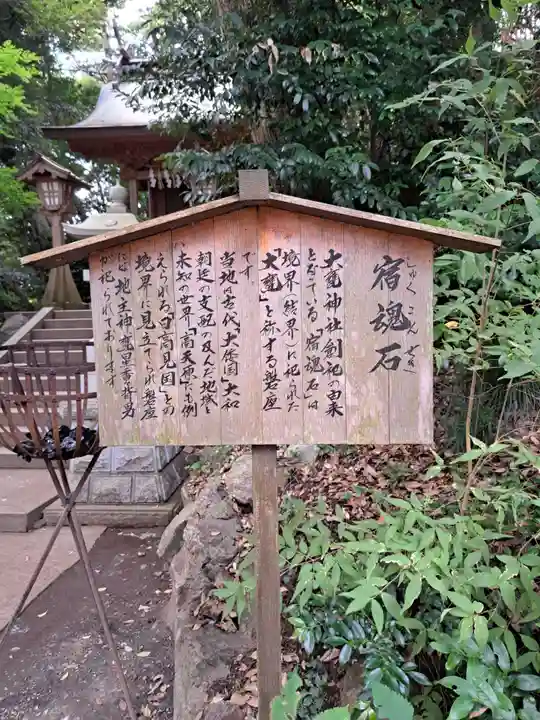 しゅくこんせき
宿魂石
大甕神社創祀の由来
となっている「宿魂石」は
境界(結界)に祀られた
「大甕」を称する磐座
です。
当地は古代「大倭国」大和
朝廷の支配の及んだ地域と
未知の世界「高天原」にも例
えられる「日高見国」との
境界に見立てられ磐座
には地主神甕星香々背男
が祀られております